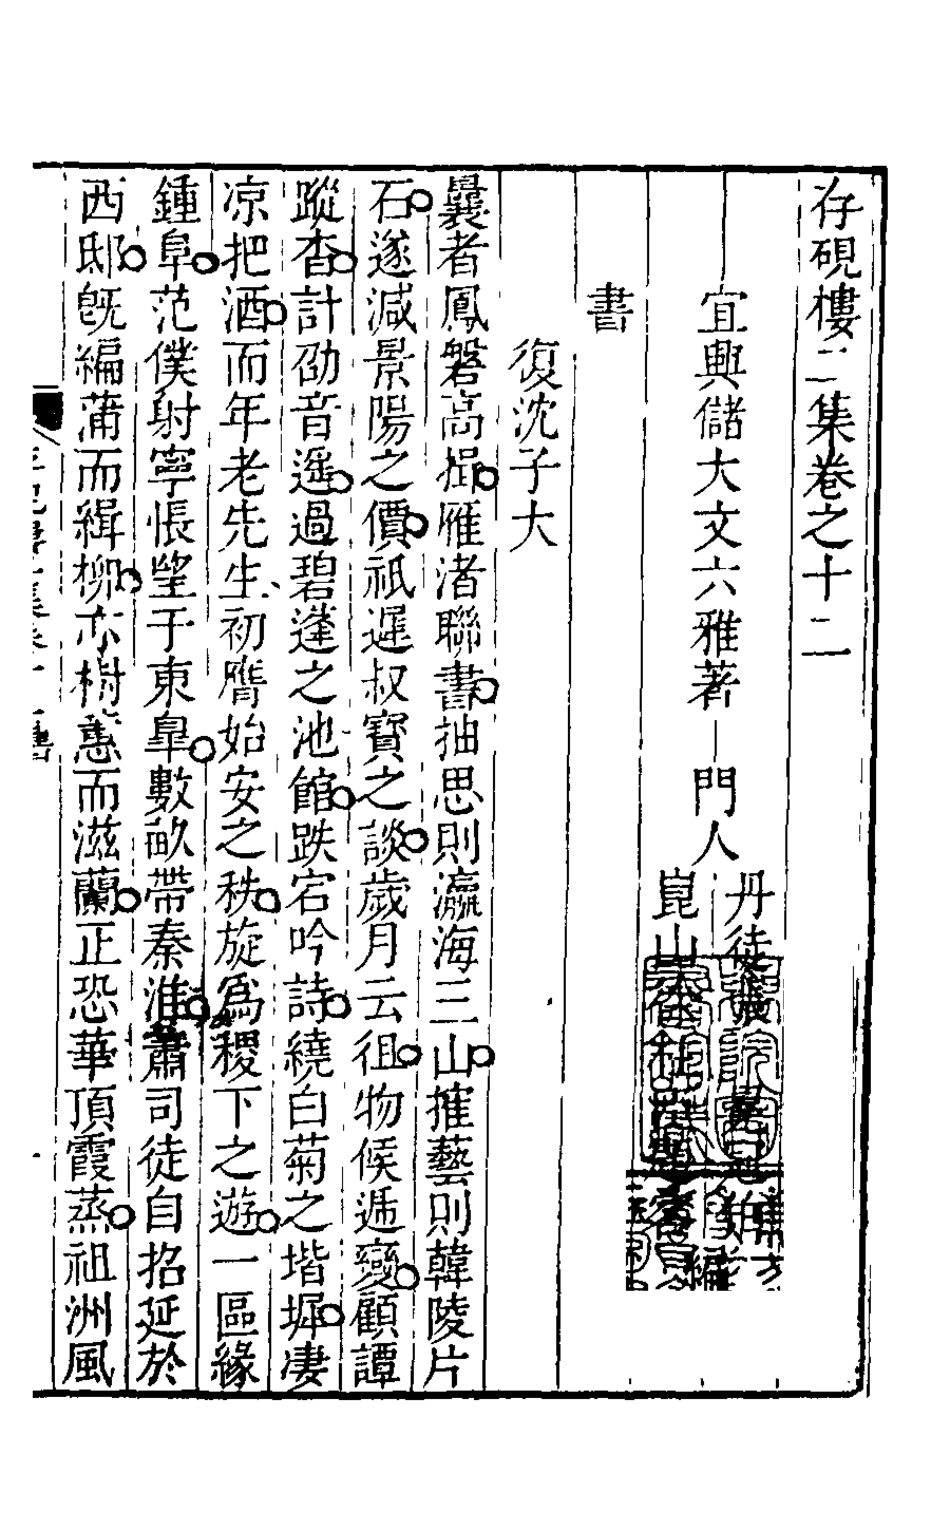 存硯樓二集卷之十二
宜興儲大文六雅著 門人
丹徒
崑山
書
復沈子大
曩者鳳磐高搢雁渚聯書抽思則瀛海三山摧藝則韓陵片
石遂減景陽之價祇遲叔寶之談歲月云徂物候遞變顧譚
蹤杳計劭音遥過碧蓬之池館跌宕吟詩繞白菊之堦墀凄
凉把酒而年老先生初膺始安之秩旋爲稷下之遊一區緣
鍾阜范僕射寧悵望于東皐數畝帶秦淮蕭司徒自招延於
西邸旣編蒲而緝柳亦樹蕙而滋蘭正恐華頂霞蒸祖洲風